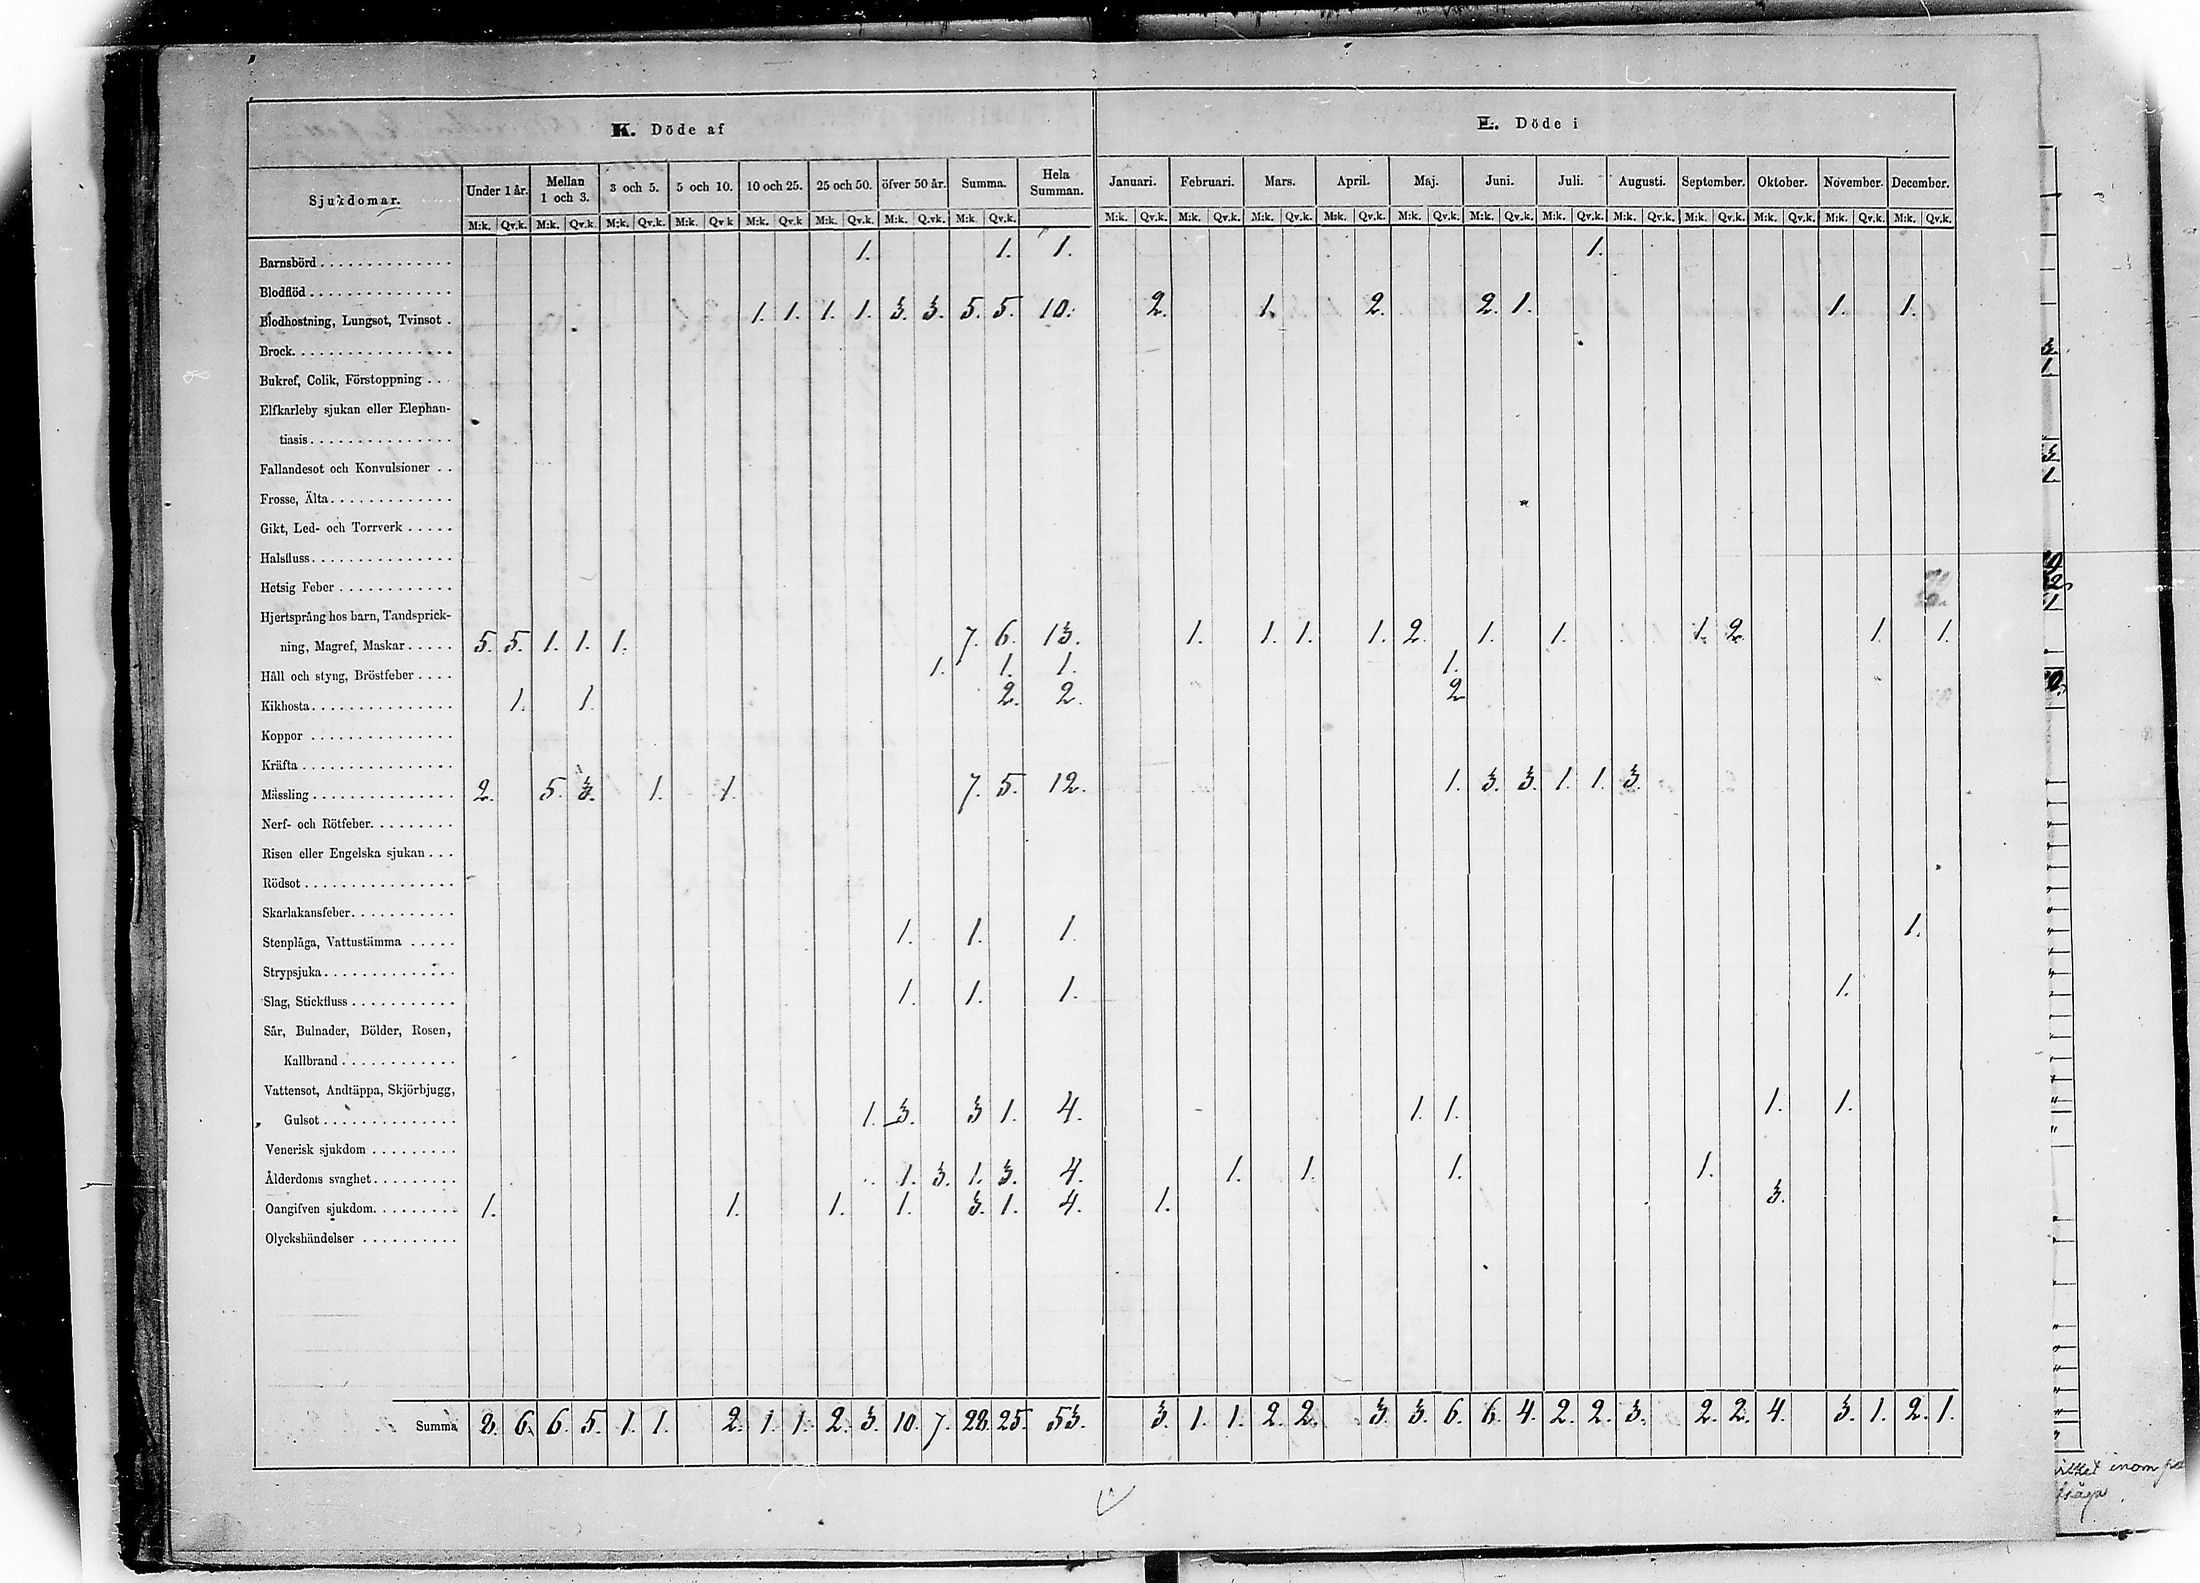 K. Döde af
L. Döde i
Sjukdomar. Under 1 år. Mellan 1 och 3. 3 och 5. 5 och 10. 10 och 25. 25 och 50. öfver 50 år. Summa. Hela Summan. Januari. Februari. Mars. April. Maj. Juni. Juli. Augusti. September. Oktober. November. December.
M:k. Qv.k. M:k. Qv.k. M:k. Qv.k. M:k. Qv k M:k. Qv.k. M:k. Qv.k. M:k. Q.vk. M:k. Qv.k. M:k. Qv.k. M:k. Qv.k. M:k. Qv.k. M:k. Qv.k. M:k. Qv.k. M:k. Qv.k. M:k. Qv.k. M:k. Qv.k. M:k. Qv.k. M:k. Qv.k. M:k. Qv.k. M:k. Qv.k.
Barnsbörd . . . . . . . . . . . . . . 1. 1. 1. 1.
Blodflöd . . . . . . . . . . . . . . .
Blodhostning, Lungsot, Tvinsot . 1. 1. 1. 1. 3. 3. 5. 5. 10. 2. 1. 2. 2. 1. 1. 1.
Brock. . . . . . . . . . . . . . . . .
Bukref, Colik, Förstoppning . . .
Elfkarleby sjukan eller Elephan-
tiasis . . . . . . . . . . . . . . .
Fallandesot och Konvulsioner . .
Frosse, Älta . . . . . . . . . . . . .
Gikt, Led- och Torrverk . . . . .
Halsfluss . . . . . . . . . . . . . . .
Hetsig Feber . . . . . . . . . . . .
Hjertsprång hos barn, Tandsprick-
ning, Magref, Maskar . . . . . 5. 5. 1. 1. 1. 7. 6. 13. 1. 1. 1. 1. 2. 1. 1. 1. 2. 1. 1.
Håll och styng, Bröstfeber . . . . 1. 1. 1. 1.
Kikhosta . . . . . . . . . . . . . . . 1. 1. 2. 2. 2
Koppor . . . . . . . . . . . . . . .
Kräfta . . . . . . . . . . . . . . . .
Mässling . . . . . . . . . . . . . . . 2. 5. 3. 1. 1. 7. 5. 12. 1. 3. 3. 1. 1. 3.
Nerf- och Rötfeber. . . . . . . . .
Risen eller Engelska sjukan . . .
Rödsot . . . . . . . . . . . . . . . .
Skarlakansfeber. . . . . . . . . . .
Stenplåga, Vattustämma . . . . . 1. 1. 1. 1.
Strypsjuka . . . . . . . . . . . . . .
Slag, Stickfluss . . . . . . . . . . . 1. 1. 1. 1.
Sår, Bulnader, Bölder, Rosen,
Kallbrand . . . . . . . . . . . .
Vattensot, Andtäppa, Skjörbjugg,
Gulsot . . . . . . . . . . . . . . 1. 3. 3 1. 4. 1. 1. 1. 1.
Venerisk sjukdom . . . . . . . . .
Ålderdoms svaghet. . . . . . . . . 1. 3. 1. 3. 4. 1. 1. 1. 1.
Oangifven sjukdom. . . . . . . . . 1. 1. 1. 1. 3. 1. 4. 1. 3.
Olyckshändelser . . . . . . . . . .
Summa 8. 6. 6. 5. 1. 1. 2. 1. 1. 2. 3. 10. 7. 28. 25. 53. 3. 1. 1. 2. 2. 3. 3. 6. 6. 4. 2. 2. 3. 2. 2. 4. 3. 1. 2. 1.
inom